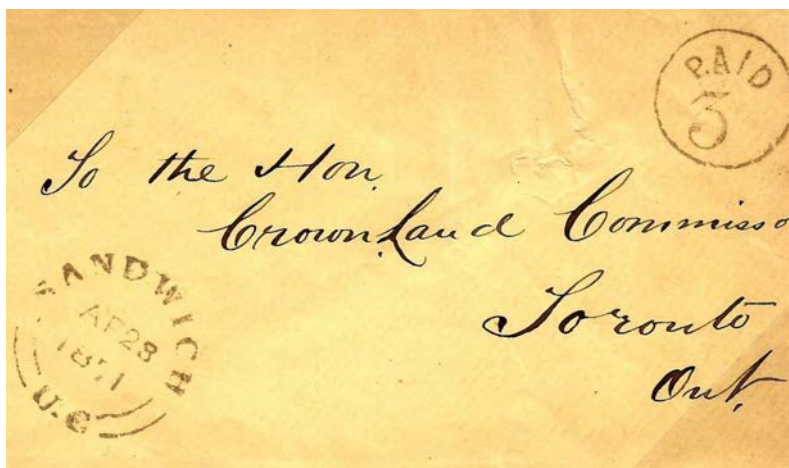 PAID
3
To the Hon.
Crown Land Commisso
Toronto
Ont.
SANDWICH
AP 28
1871
U.C